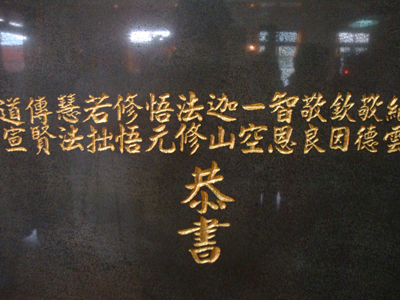 雲
敬德
欽因
敬良
智恩
一空
迦山
法修
悟元
修悟
若拙
慧法
傳賢
道宣
恭書